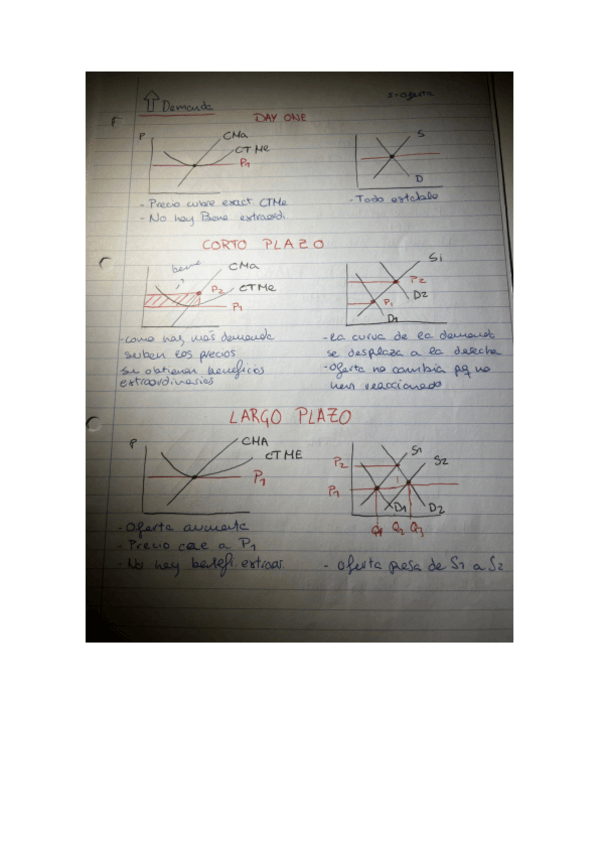 ⇧ Demanda
S=oferta
F
DAY ONE
P
CMa
CTMe
P1
S
D
- Precio cubre exact. CTMe
- No hay Bene extraordi.
- Todo estable
CORTO PLAZO
bene
CMa
P2
CTMe
P1
Si
P2
D2
P1
D1
- como hay más demanda
suben los precios
se obtienen beneficios
extraordinarios
- La curva de la demanda
se desplaza a la derecha
- oferta no cambia pq no
han reaccionado
LARGO PLAZO
P
CMA
CTME
P1
S1
P2
S2
P1
D1
D2
Q1 Q2 Q3
- Oferta aumenta
- Precio cae a P1
- No hay benefi. extraor.
- Oferta pasa de S1 a S2